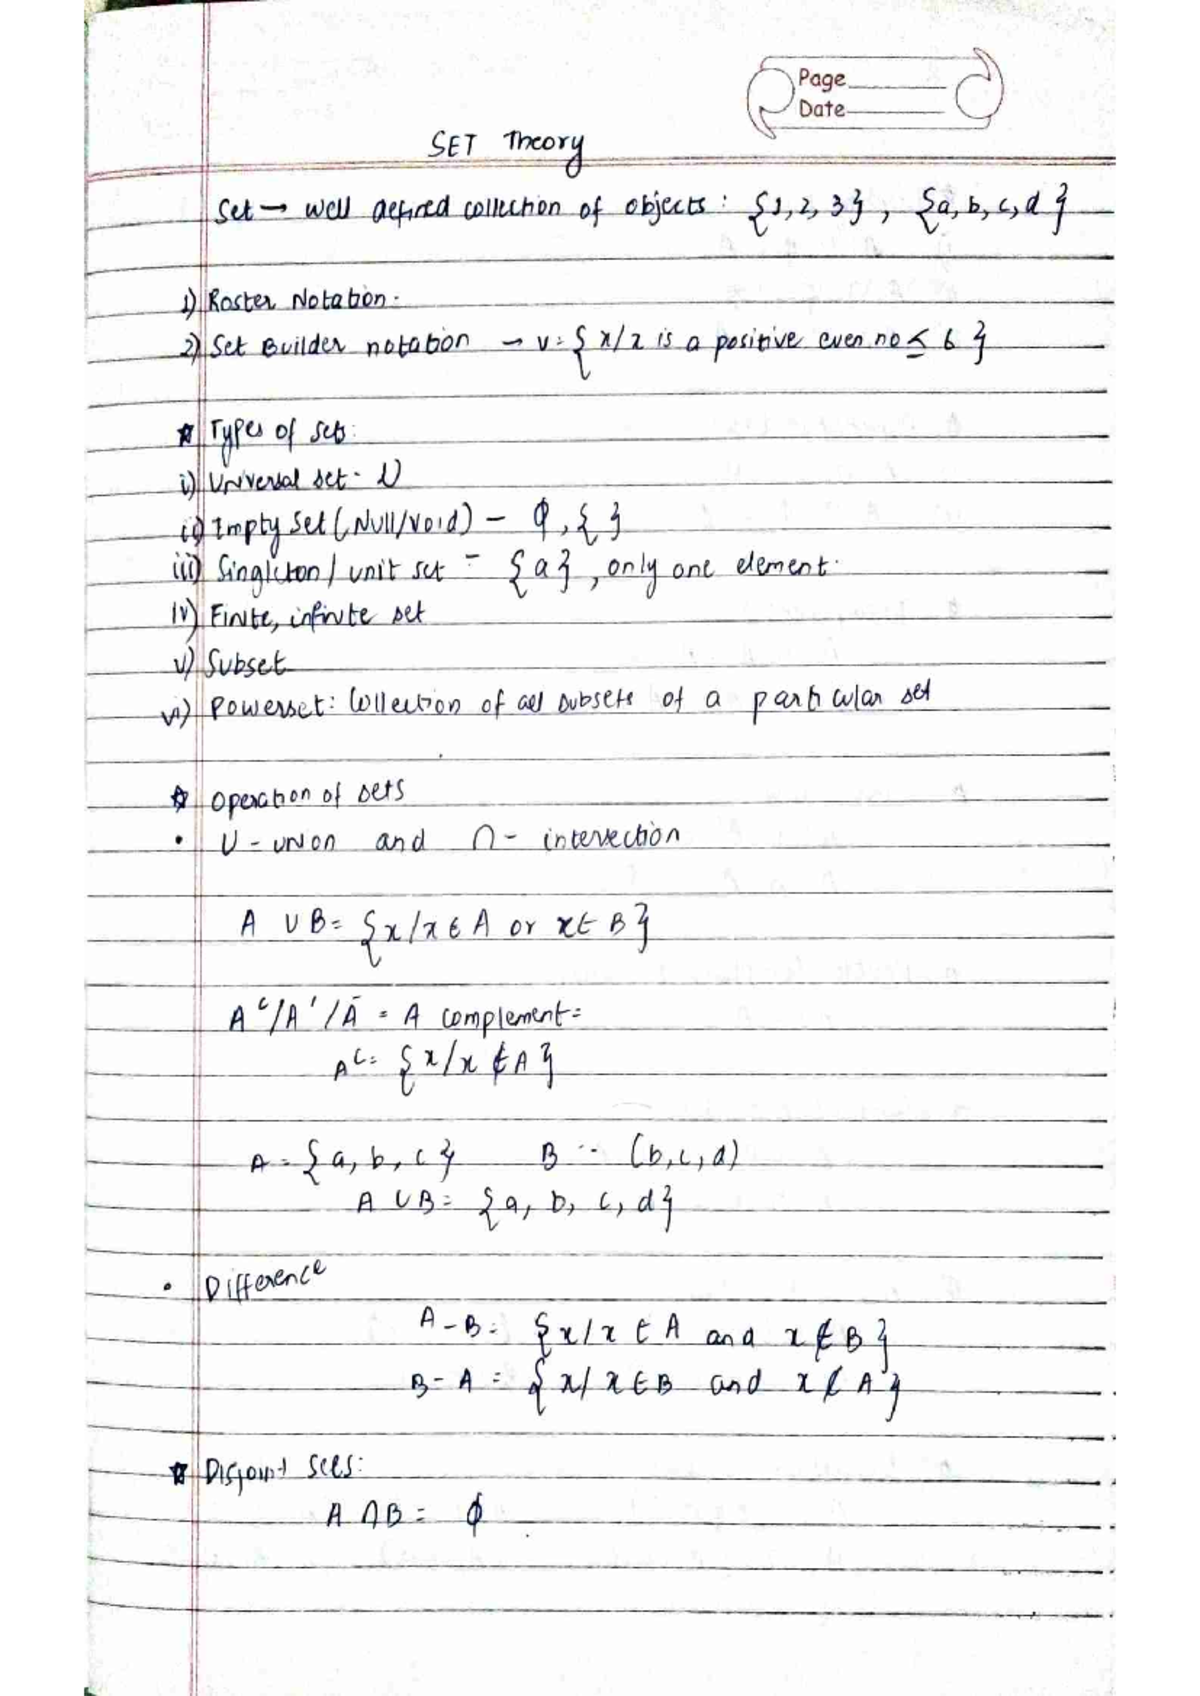 Page
Date
SET Theory
Set → well defined collection of objects : {1, 2, 3} , {a, b, c, d }
1) Roster Notation.
2) Set Builder notation → v = { x/x is a positive even no ≤ 6 }
☆ Types of sets:
i) Universal set - U
ii) Empty set (Null/void) - ϕ, { }
iii) Singleton / unit set - {a} , only one element.
iv) Finite, infinite set
v) Subset
vi) Powerset: Collection of all subsets of a particular set
☆ Operation of sets
• U - union and ∩ - intersection
A ∪ B = {x/x ∈ A or x ∈ B}
Aᶜ/A'/Ā = A complement =
Aᶜ = {x/x ∉ A}
A = {a, b, c} B = (b, c, d)
A ∪ B = {a, b, c, d}
• Difference
A - B = {x/x ∈ A and x ∉ B}
B - A = {x/x ∈ B and x ∉ A}
☆ Disjoint sets:
A ∩ B = ϕ